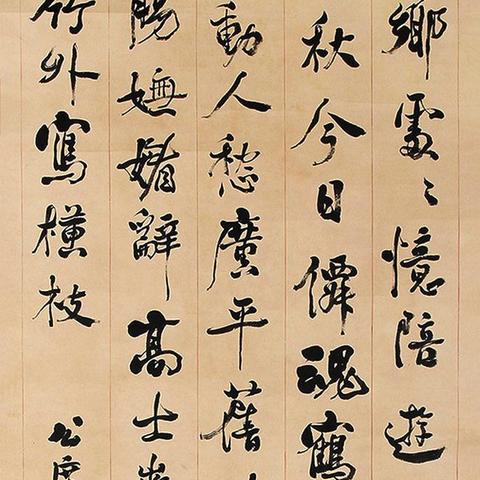 鄉處々憶陪遊
秋今日僊魂鶴
動人愁廣平舊
腸嫵媚辭高士
竹外寫橫枝
公度